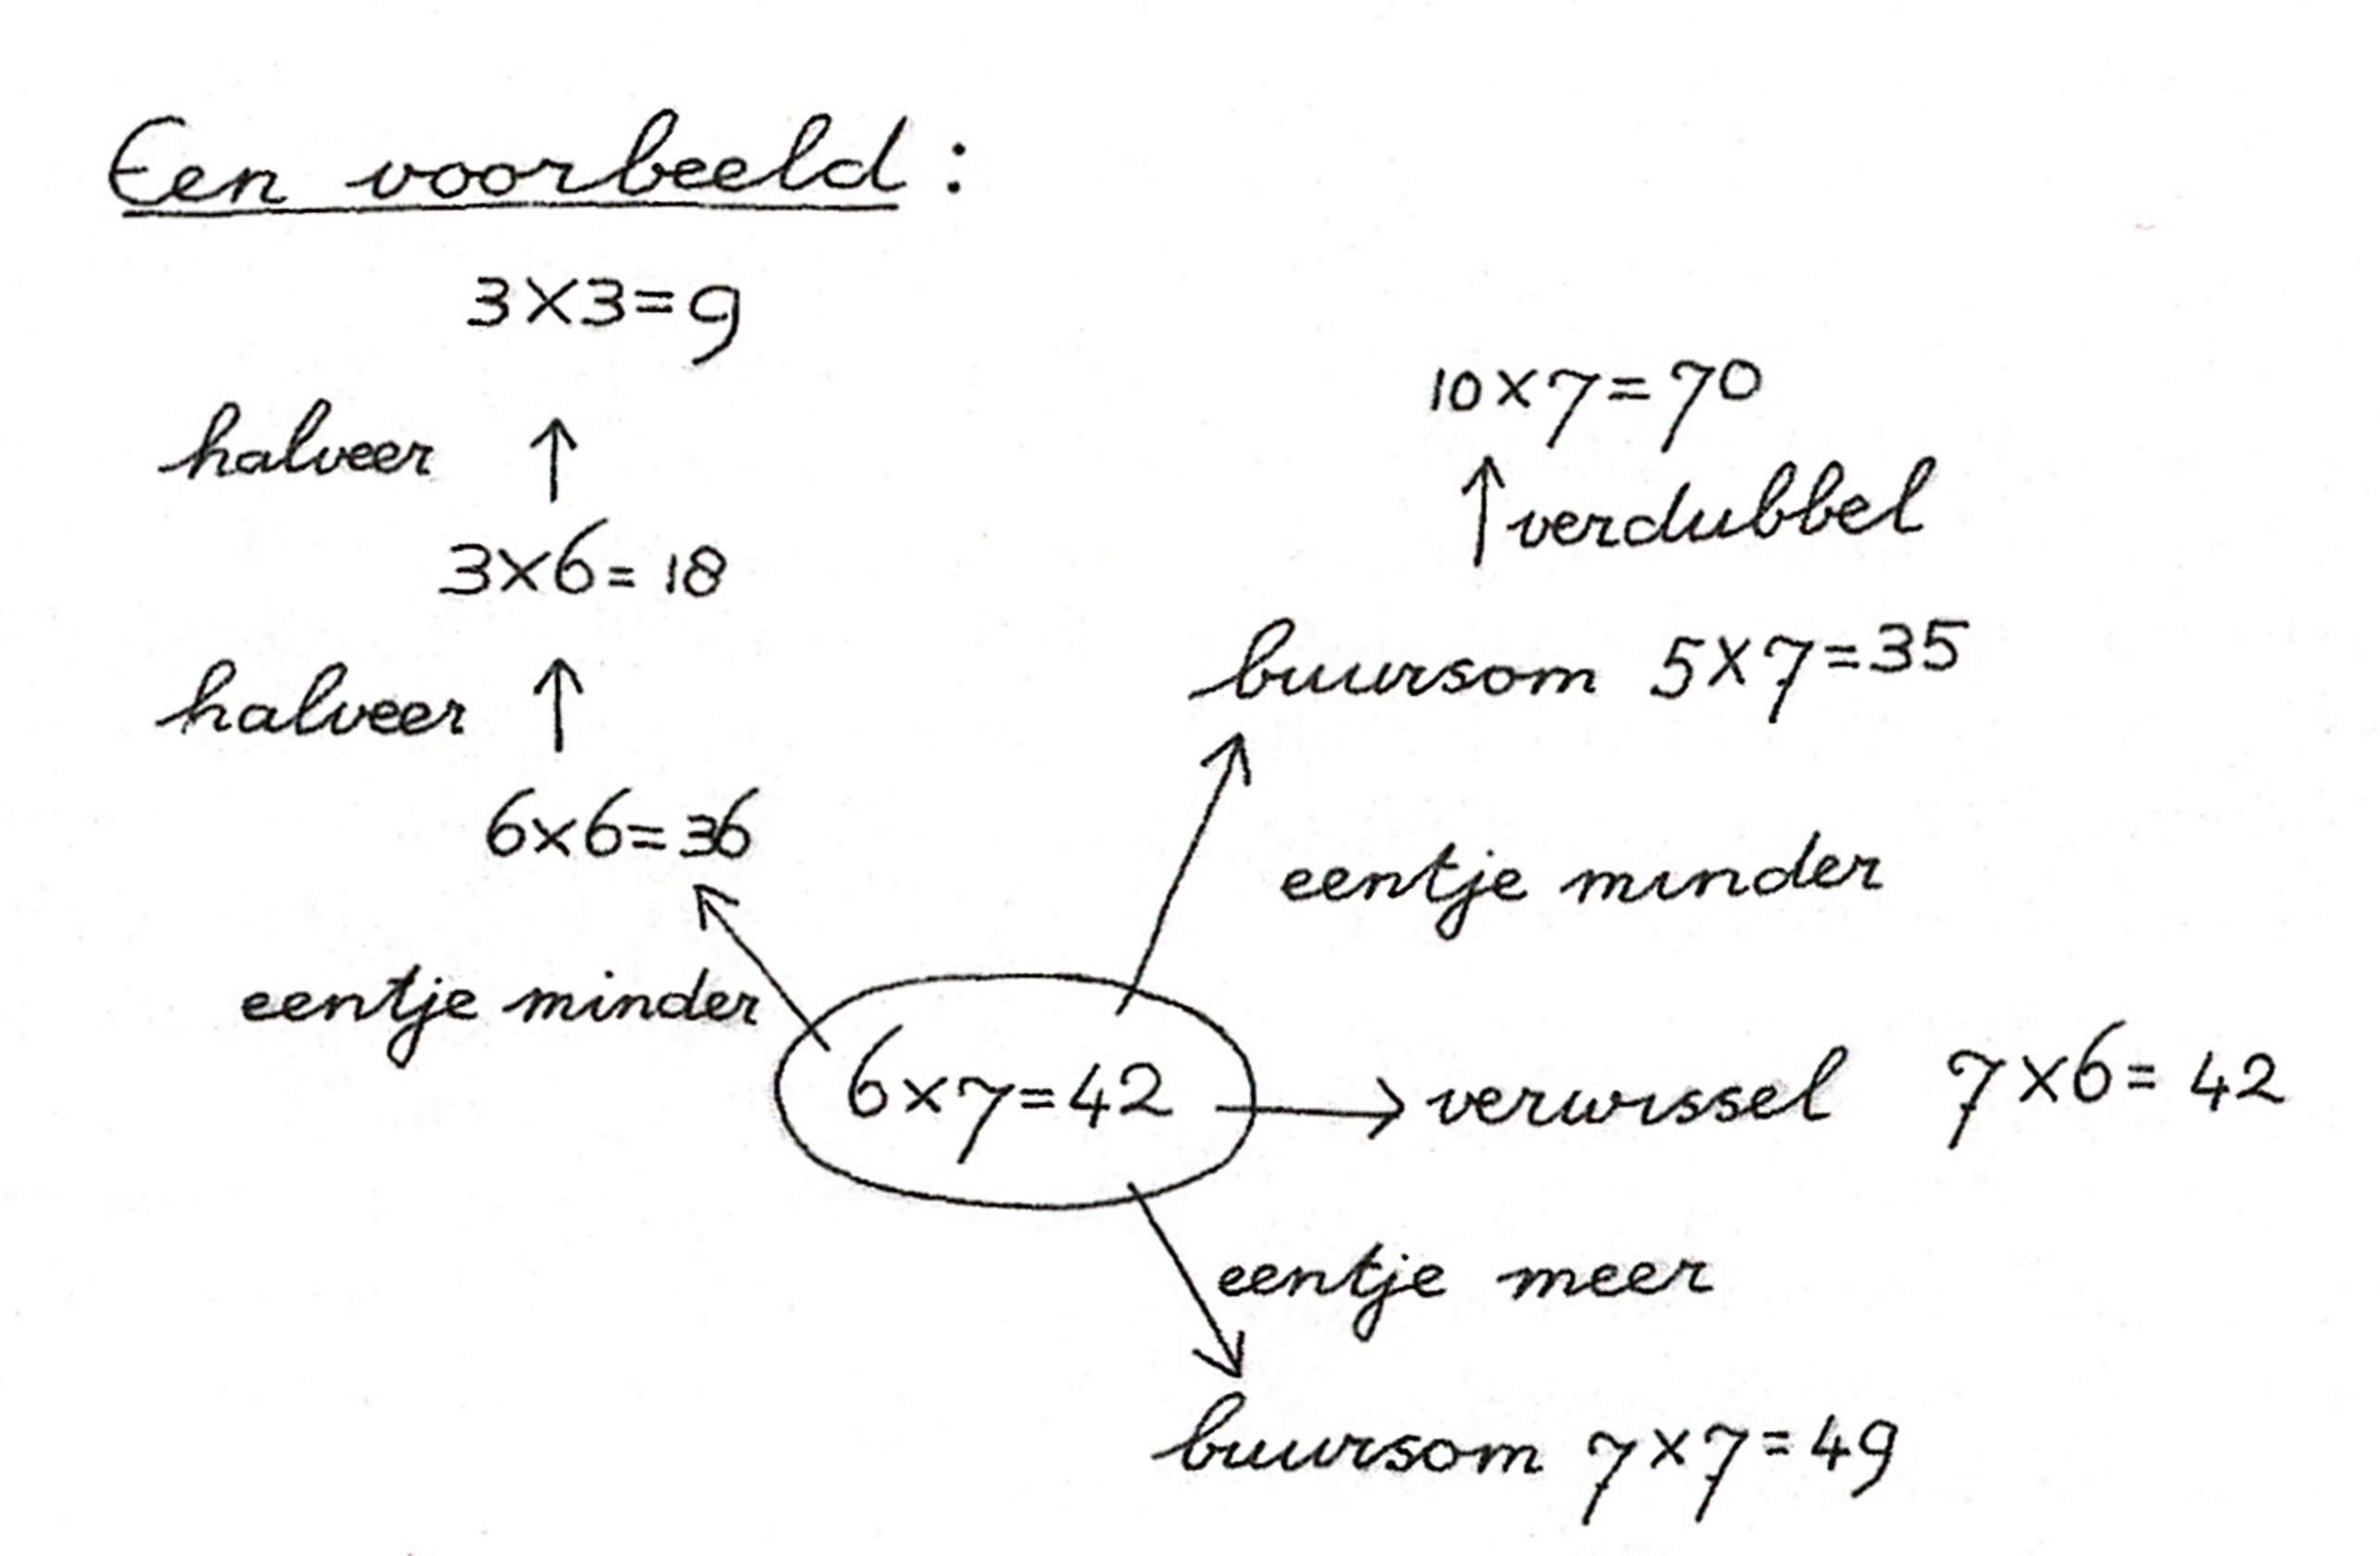 Een voorbeeld:
3×3=9
halveer ↑
3×6=18
halveer ↑
6×6=36
eentje minder
10×7=70
↑ verdubbel
buursom 5×7=35
eentje minder
6×7=42 → verwissel 7×6=42
eentje meer
buursom 7×7=49